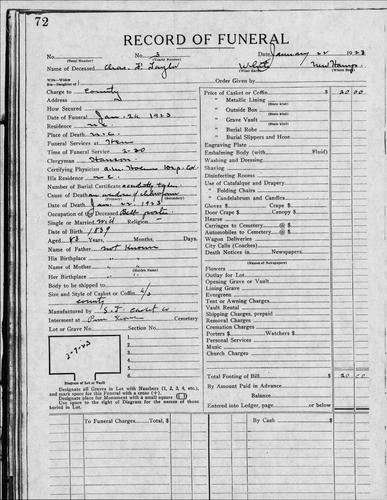 72
RECORD OF FUNERAL
No. No. 3 Date January 22 1923
(Total Number) (Yearly Number)
Name of Deceased Chas. F. Taylor White New Hamp.
(What Race) (Where Born)
Wife—Widow
Son—Daughter of
Charge to County
Address
How Secured
Date of Funeral Jan. 24 1923
Residence
Place of Death N.C.
Funeral Services at Here
Time of Funeral Service 2:30
Clergyman Hanson
Certifying Physician
His Residence N.C.
Number of Burial Certificate
Cause of Death
(Primary) (Secondary)
Date of Death Jan. 22, 1923
Occupation of the Deceased
Single or Married Wid Religion
Date of Birth 1839
Aged 83 Years, Months, Days
Name of Father Not Known
His Birthplace
Name of Mother
(Maiden Name)
Her Birthplace
Body to be shipped to
Size and Style of Casket or Coffin 6/3
County
Manufactured by Casket Co
Interment at Cemetery
Lot or Grave No. Section No.
1.
2.
3.
4.
5.
6.
2-9-23
Diagram of Lot or Vault
Designate all Graves in Lot with Numbers (1, 2, 3, 4, etc.), and mark space for this Funeral with a cross (+).
Designate place for Monument with a small square (□)
Use space to the right of Diagram for the names of those buried in Lot.
To Funeral Charges. . . . Total, $
Order Given by
Price of Casket or Coffin $ 20 00
" Metallic Lining
(State Kind)
" Outside Box
(State Kind)
" Grave Vault
(State Kind)
" Burial Robe
(State Kind)
" Burial Slippers and Hose
Engraving Plate
Embalming Body (with Fluid)
Washing and Dressing
Shaving
Disinfecting Rooms
Use of Catafalque and Drapery
" Folding Chairs
" Candelabrum and Candles
Gloves $ Crape $
Door Crape $ Canopy $
Hearse
Carriages to Cemetery @ $
Automobiles to Cemetery @ $
Wagon Deliveries
City Calls (Coaches)
Death Notices in Newspapers
(Names of Newspapers)
Flowers
Outlay for Lot
Opening Grave or Vault
Lining Grave
Evergreen
Tent or Awning Charges
Vault Rental
Shipping Charges, prepaid
Removal Charges
Cremation Charges
Porters $ Watchers $
Personal Services
Music
Church Charges
Total Footing of Bill $ 20 00
By Amount Paid in Advance
Balance
Entered into Ledger, page or below
By Cash $